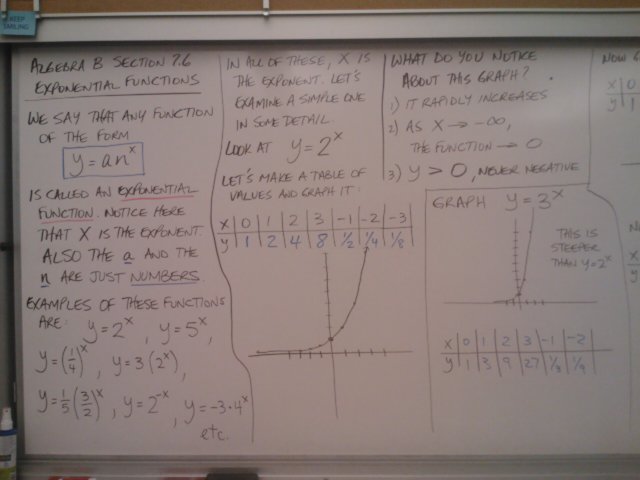 KEEP
SMILING
ALGEBRA B SECTION 7.6
EXPONENTIAL FUNCTIONS
WE SAY THAT ANY FUNCTION
OF THE FORM
y = an^x
IS CALLED AN EXPONENTIAL
FUNCTION. NOTICE HERE
THAT X IS THE EXPONENT.
ALSO THE a AND THE
n ARE JUST NUMBERS.
EXAMPLES OF THESE FUNCTIONS
ARE: y = 2^x, y = 5^x,
y = (1/4)^x, y = 3(2^x),
y = 1/5(3/2)^x, y = 2^-x, y = -3·4^x
etc.
IN ALL OF THESE, X IS
THE EXPONENT. LET'S
EXAMINE A SIMPLE ONE
IN SOME DETAIL.
LOOK AT y = 2^x
LET'S MAKE A TABLE OF
VALUES AND GRAPH IT:
x 0 1 2 3 -1 -2 -3
y 1 2 4 8 1/2 1/4 1/8
WHAT DO YOU NOTICE
ABOUT THIS GRAPH?
1) IT RAPIDLY INCREASES
2) AS X → -∞,
THE FUNCTION → 0
3) y > 0, NEVER NEGATIVE
GRAPH y = 3^x
THIS IS
STEEPER
THAN y = 2^x
x 0 1 2 3 -1 -2
y 1 3 9 27 1/3 1/9
NOW
x 0
y 1
x
y